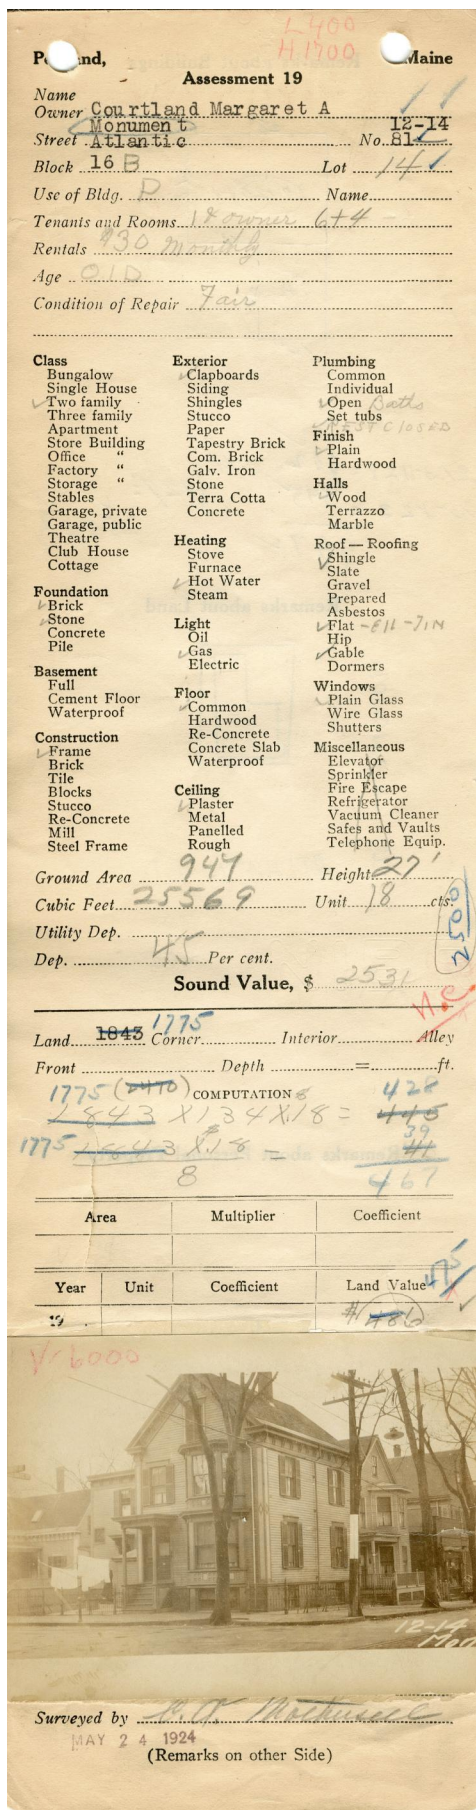 L 400
H.1700
Portland, Maine
Assessment 19
Name
Owner Courtland Margaret A
Monument 12-14
Street Atlantic No. 81
Block 16 B Lot 14
Use of Bldg. D Name
Tenants and Rooms 1 & owner 6+4
Rentals $30 Monthly
Age OLD
Condition of Repair Fair
Class
Bungalow
Single House
✓ Two family
Three family
Apartment
Store Building
Office "
Factory "
Storage "
Stables
Garage, private
Garage, public
Theatre
Club House
Cottage
Foundation
✓ Brick
✓ Stone
Concrete
Pile
Basement
Full
Cement Floor
Waterproof
Construction
✓ Frame
Brick
Tile
Blocks
Stucco
Re-Concrete
Mill
Steel Frame
Exterior
✓ Clapboards
Siding
Shingles
Stucco
Paper
Tapestry Brick
Com. Brick
Galv. Iron
Stone
Terra Cotta
Concrete
Heating
Stove
Furnace
✓ Hot Water
Steam
Light
Oil
✓ Gas
Electric
Floor
✓ Common
Hardwood
Re-Concrete
Concrete Slab
Waterproof
Ceiling
✓ Plaster
Metal
Panelled
Rough
Plumbing
Common
Individual
✓ Open Baths
Set tubs
✓ REST CLOSED
Finish
✓ Plain
Hardwood
Halls
✓ Wood
Terrazzo
Marble
Roof — Roofing
✓ Shingle
Slate
Gravel
Prepared
Asbestos
✓ Flat - Ell - TIN
Hip
✓ Gable
Dormers
Windows
✓ Plain Glass
Wire Glass
Shutters
Miscellaneous
Elevator
Sprinkler
Fire Escape
Refrigerator
Vacuum Cleaner
Safes and Vaults
Telephone Equip.
Ground Area 947 Height 27'
Cubic Feet 25569 Unit 18 cts.
2500
Utility Dep.
Dep. 45 Per cent.
Sound Value, $ 2531
N.C.
Land 1843 1775 Corner Interior Alley
Front Depth = ft.
1775 (2470) COMPUTATION 428
1843 X 134 X .18 = 445
39
1775 1843 X .18 = 41
8 467
Area Multiplier Coefficient
475
Year Unit Coefficient Land Value
19 $ 486
V-6000
12-14
Surveyed by
MAY 24 1924
(Remarks on other Side)